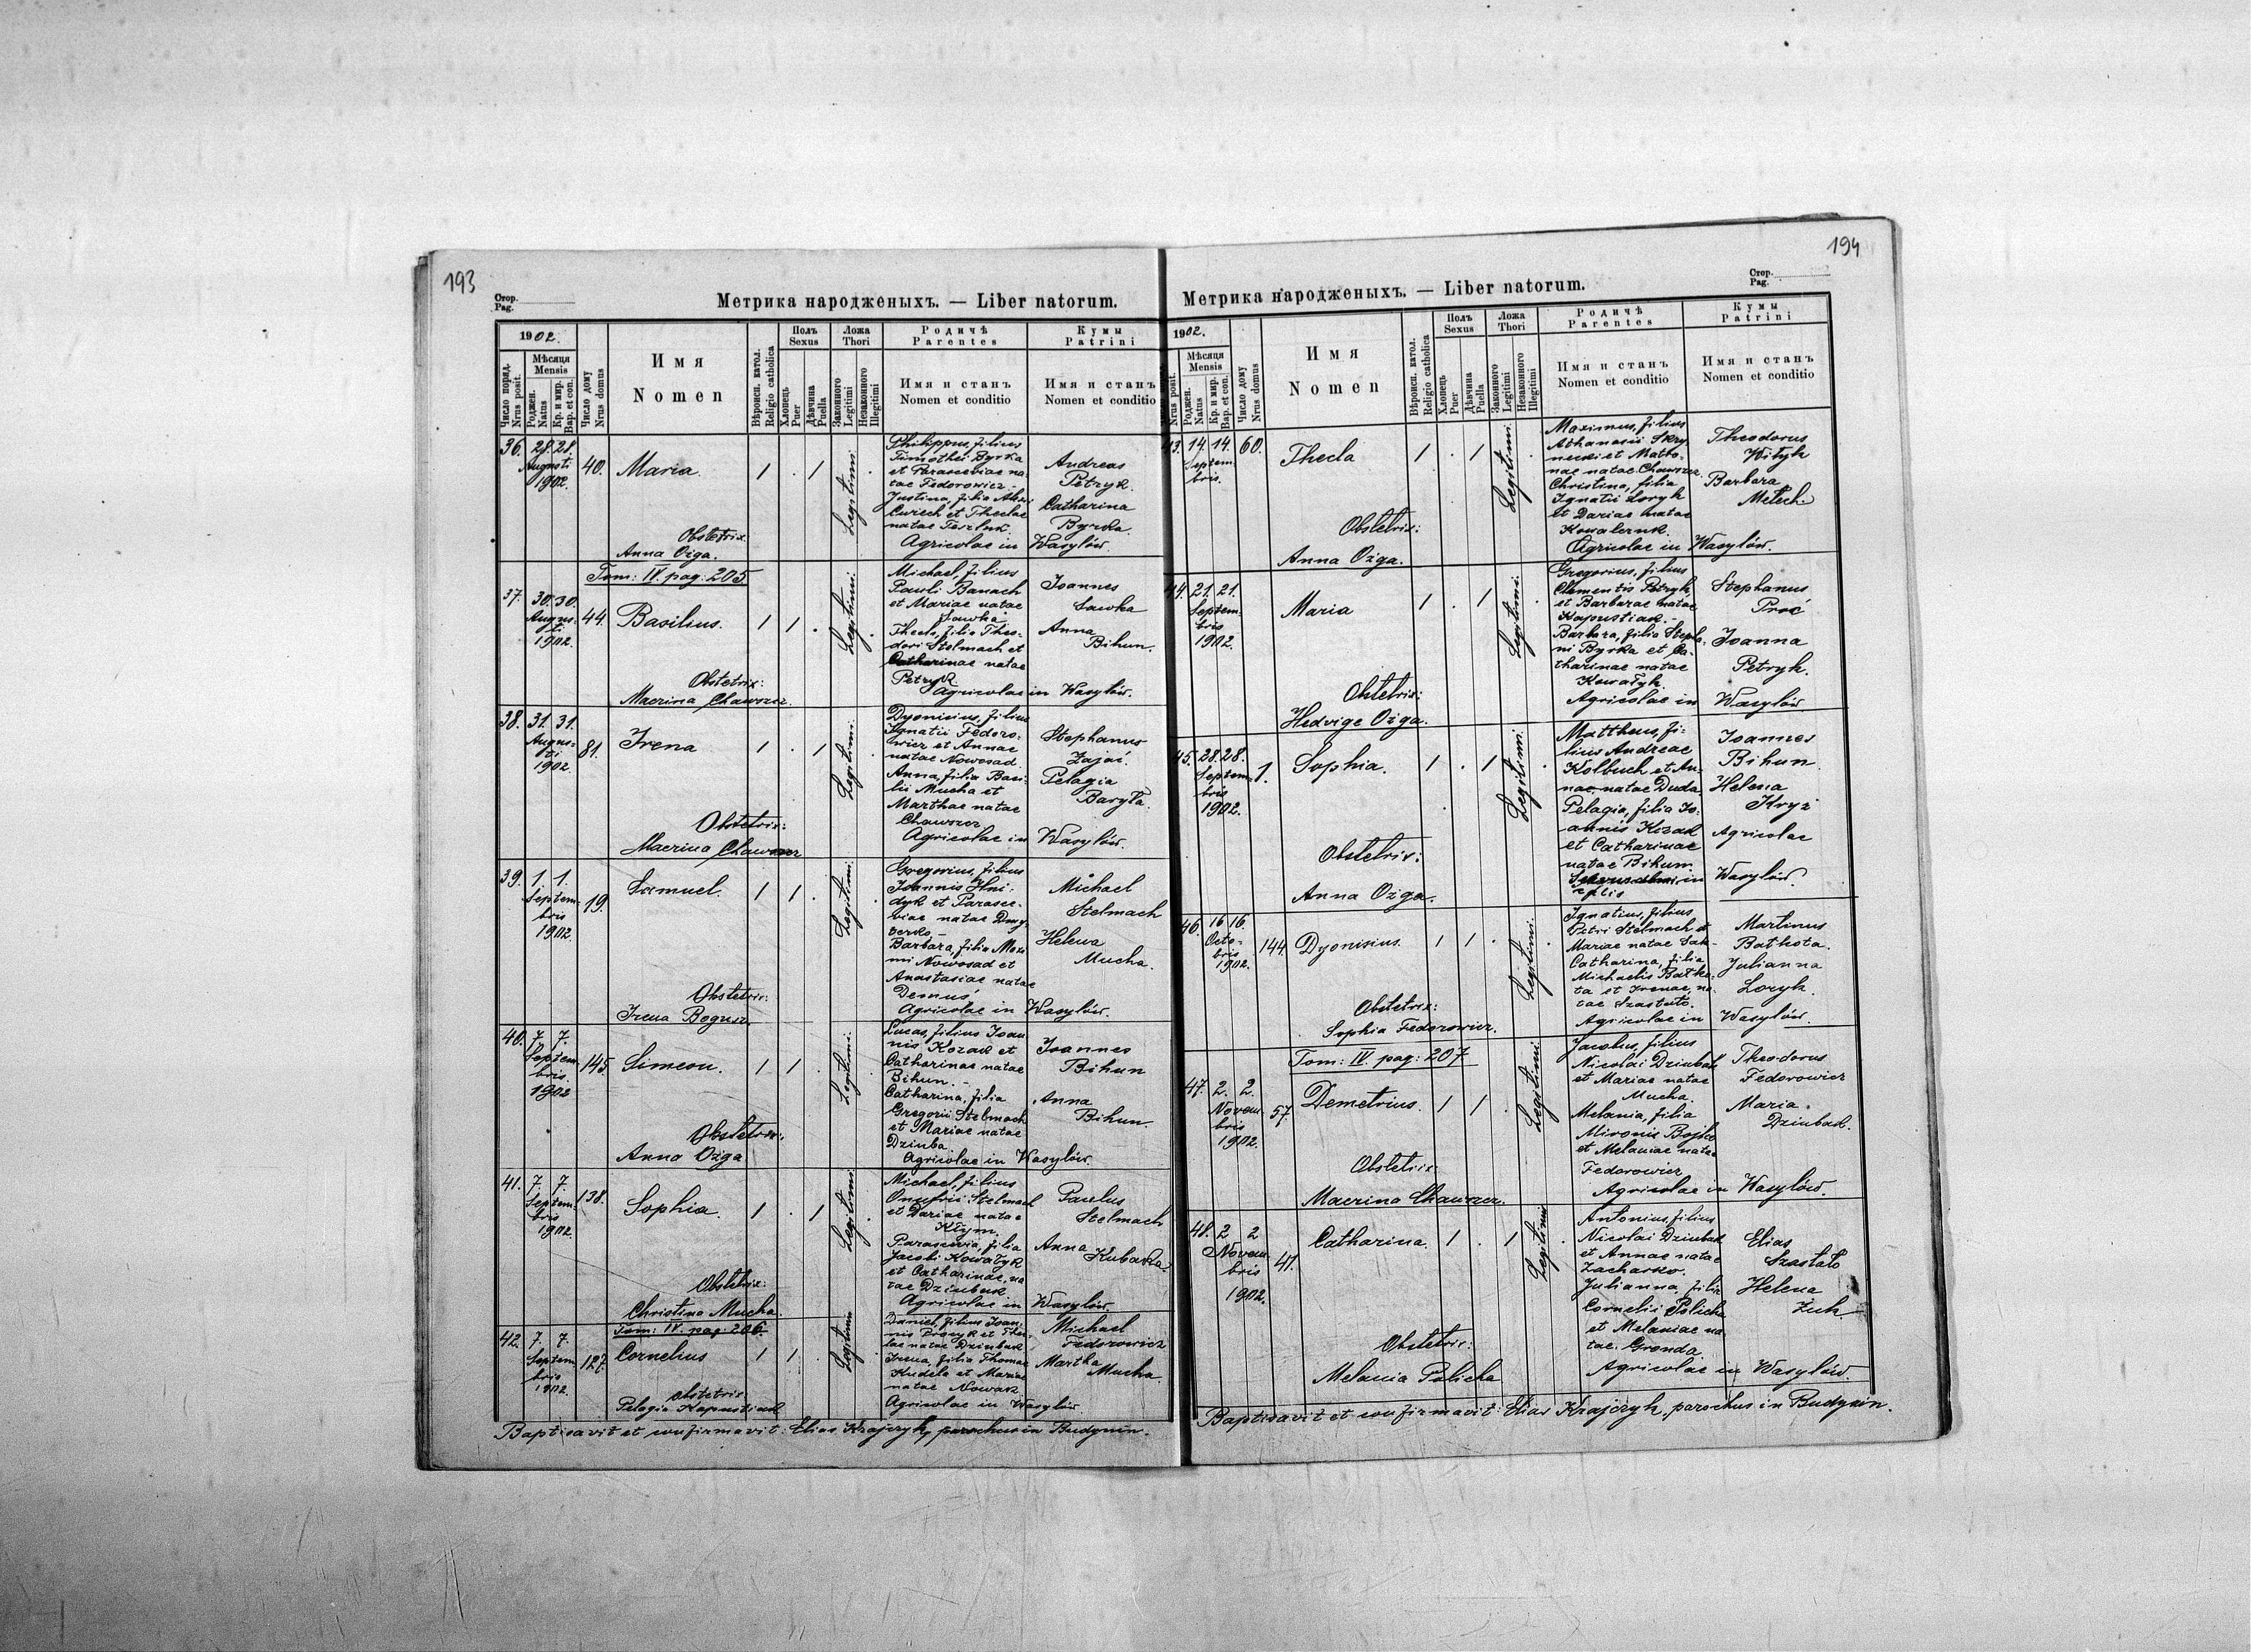 193
Стор.
Pag.
Метрика народженыхъ. — Liber natorum.
1902.
Число поряд.
Nrus posit.
Мѣсяця
Mensis
Роджен.
Natus
Кр. и мир.
Bap. et con.
Число дому
Nrus domus
Имя
Nomen
Вѣроисп. катол.
Religio catholica
Полъ
Sexus
Хлопець
Puer
Дѣвчина
Puella
Ложа
Thori
Законного
Legitimi
Незаконного
Illegitimi
Родичѣ
Parentes
Имя и станъ
Nomen et conditio
Кумы
Patrini
Имя и станъ
Nomen et conditio
36. 28. 28.
Augusti
1902.
40. Maria. 1 . 1 Legitimi .
Philippus, filius
Timothei Byrka
et Parasceviae na-
tae Fedorowicz.-
Justina, filia Alexi
Curiech et Theclae
natae
Agricolae in Wasylów.
Andreas
Petryk.
Catharina
Byrka
Obstetrix
Anna Ożga.
Tom: IV. pag: 205
37. 30. 30.
Augus-
ti
1902.
44. Basilius. 1 1 . Legitimi .
Michael, filius
Pauli Banach
et Mariae natae
Sawka
Thecla, filia Theo-
dori Stelmach et
Catharinae natae
Petryk
Agricolae in Wasylów.
Joannes
Sawka
Anna
Bihun.
Obstetrix:
Macrina Chawrzer.
38. 31. 31.
Augus-
ti
1902.
81. Irena 1 . 1 Legitimi .
Dyonisius, filius
Ignatii Fedoro-
wicz et Annae
natae Nowosad.
Anna, filia Basi-
lii Mucha et
Marthae natae
Chawrzer
Agricolae in Wasylów.
Stephanus
Zając.
Pelagia
Baryła.
Obstetrix:
Macrina Chawrzer
39. 1. 1.
Septem-
bris
1902.
19. Samuel. 1 1 . Legitimi .
Gregorius, filius
Joannis Hni-
dyk et Parasce-
viae natae Dmy-
terko.-
Barbara, filia Maxi
mi Nowosad et
Anastasiae natae
Demus
Agricolae in Wasylów.
Michael
Stelmach
Helena
Mucha.
Obstetrix:
Irena Bogusz.
40. 7. 7.
Septem-
bris.
1902
145. Simeon. 1 1 . Legitimi .
Lucas, filius Joan
nis Kozak et
Catharinae natae
Bihun. -
Catharina, filia
Gregorii Stelmach
et Mariae natae
Dziuba
Agricolae in Wasylów.
Joannes
Bihun
Anna
Bihun.
Obstetrix:
Anna Ożga
41. 7. 7.
Septem-
bris
1902.
138. Sophia. 1 . 1 Legitimi .
Michael, filius
Onufrii Stelmach
et Dariae natae
Kłym.
Parascevia, filia
Jacobi Kowałyk
et Catharinae, na
tae Dziubak
Agricolae in Wasylów.
Paulus
Stelmach
Anna
Kubarka.
Obstetrix:
Christina Mucha.
Tom: IV. pag: 206.
42. 7. 7.
Septem
bris
1902.
127. Cornelius 1 1 . Legitimi
Daniel, filius Joan-
nis Procyk et The-
clae natae Dziubak
Irena, filia Thomae
Kudela et Mariae
natae Nowak
Agricolae in Wasylów
Michael
Fedorowicz
Martha
Mucha.
Obstetrix:
Pelagia Kapustiak
Baptisavit et confirmavit: Elias Krajczyk, parochus in Budynin.
194
Стор.
Pag.
Метрика народженыхъ. — Liber natorum.
1902.
Nrus posit.
Мѣсяця
Mensis
Роджен.
Natus
Кр. и мир.
Bap. et con.
Число дому
Nrus domus
Имя
Nomen
Вѣроисп. катол.
Religio catholica
Полъ
Sexus
Хлопець
Puer
Дѣвчина
Puella
Ложа
Thori
Законного
Legitimi
Незаконного
Illegitimi
Родичѣ
Parentes
Имя и станъ
Nomen et conditio
Кумы
Patrini
Имя и станъ
Nomen et conditio
43. 14. 14.
Septem-
bris.
60. Thecla 1 . 1 Legitimi .
Maximus, filius
Athanasii
et Matro-
nae natae Chawrzer
Christina, filia
Ignatii Loryk
et Dariae natae
Kowalczuk.
Agricolae in Wasylów.
Theodorus
Wityk
Barbara
Melech.
Obstetrix:
Anna Ożga.
44. 21. 21.
Septem-
bris
1902.
Maria 1 . 1 Legitimi .
Gregorius, filius
Clementis Petryk
et Barbarae natae
Kapustiak.-
Barbara, filia Stepha-
ni Byrka et Ca-
tharinae natae
Kowałyk.
Agricolae in Wasylów.
Stephanus
Proć
Joanna
Petryk.
Obstetrix:
Hedvige Ożga.
45. 28. 28.
Septem-
bris
1902.
1. Sophia. 1 . 1 Legitimi .
Mattheus, fi-
lius Andreae
Kolbuch et An-
nae, natae Duda
Pelagia, filia Jo-
annis Kozak
et Catharinae
natae Bihun.
in Wasylów.
Joannes
Bihun
Helena
Hryz
Agricolae
Obstetrix:
Anna Ożga.
46. 16 16.
Octo-
bris
1902.
144. Dyonisius. 1 1 . Legitimi .
Ignatius, filius
Petri Stelmach et
Mariae natae Sak-
Catharina, filia
Michaelis Bałko-
ta et Irenae, na-
tae Szastało.
Agricolae in Wasylów.
Martinus
Bałkota.
Julianna
Loryk.
Obstetrix:
Sophia Fedorowicz.
Tom: IV. pag: 207
47. 2. 2.
Novem-
bris
1902.
57. Demetrius. 1 1 . Legitimi
Jacobus, filius
Nicolai Dziubak
et Mariae natae
Mucha.
Melania, filia
Mironis Bojko
et Melaniae natae
Fedorowicz
Agricolae in Wasylów.
Theodorus
Fedorowicz
Maria
Dziubak.
Obstetrix
Macrina Chawrzer.
48. 2 2
Novem-
bris
1902.
41. Catharina. 1 . 1 Legitimi .
Antonius, filius
Nicolai Dziubak
et Annae natae
Zacharko.
Julianna, filia
Cornelii Palicha
et Melaniae na
tae Gronda.
Agricolae in Wasylów.
Elias
Szastało
Helena
Żuk
Obstetrix:
Melania Palicha
Baptisavit et confirmavit: Elias Krajczyk, parochus in Budynin.